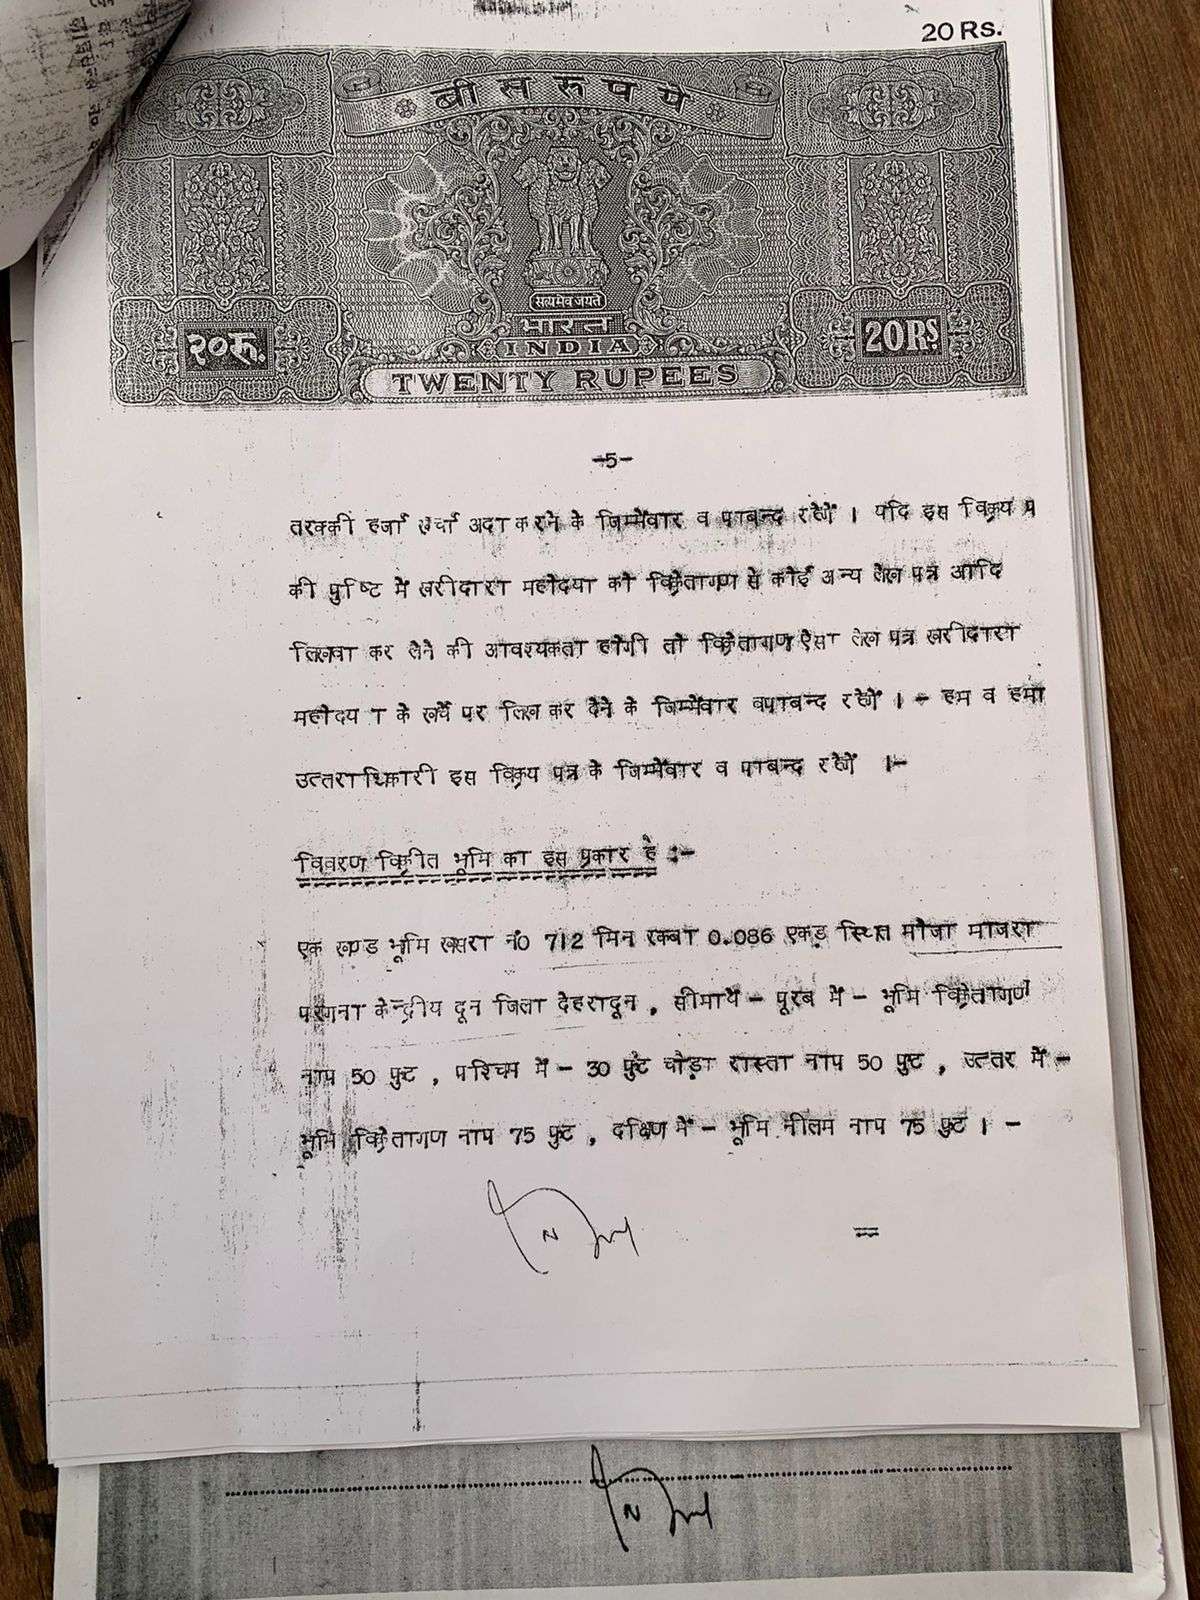 20 RS.
बीस रुपये
सत्यमेव जयते
भारत
INDIA
२०रू.
20RS
TWENTY RUPEES
-5-
तरक्की हर्जा खर्चा अदा करने के जिम्मेंवार व पाबन्द रहेगें । यदि इस विक्रय प
की पुष्टि में खरीदारा महोदया को विक्रेतागण से कोई अन्य लेख पत्र आदि
लिखवा कर लेने की आवश्यकता होगी तो विक्रेतागण ऐसा लेख पत्र खरीदारा
महोदय ा के खर्चे पर लिख कर देने के जिम्मेंवार वपाबन्द रहेगें । - हम व हमा
उत्तराधिकारी इस विक्रय पत्र के जिम्मेंवार व पाबन्द रहेगें ।-
विवरण विक्रीत भूमि का इस प्रकार है :-
एक खण्ड भूमि खसरा नं0 712 मिन रकबा 0.086 एकड़ स्थित मौजा माजरा
परगना केन्द्रीय दून जिला देहरादून , सीमायें - पूरब में - भूमि विक्रेतागण
नाप 50 फुट , पश्चिम में - 30 फुट चोड़ा रास्ता नाप 50 फुट , उत्तर में -
भूमि विक्रेतागण नाप 75 फुट , दक्षिण में - भूमि नीलम नाप 75 फुट । -